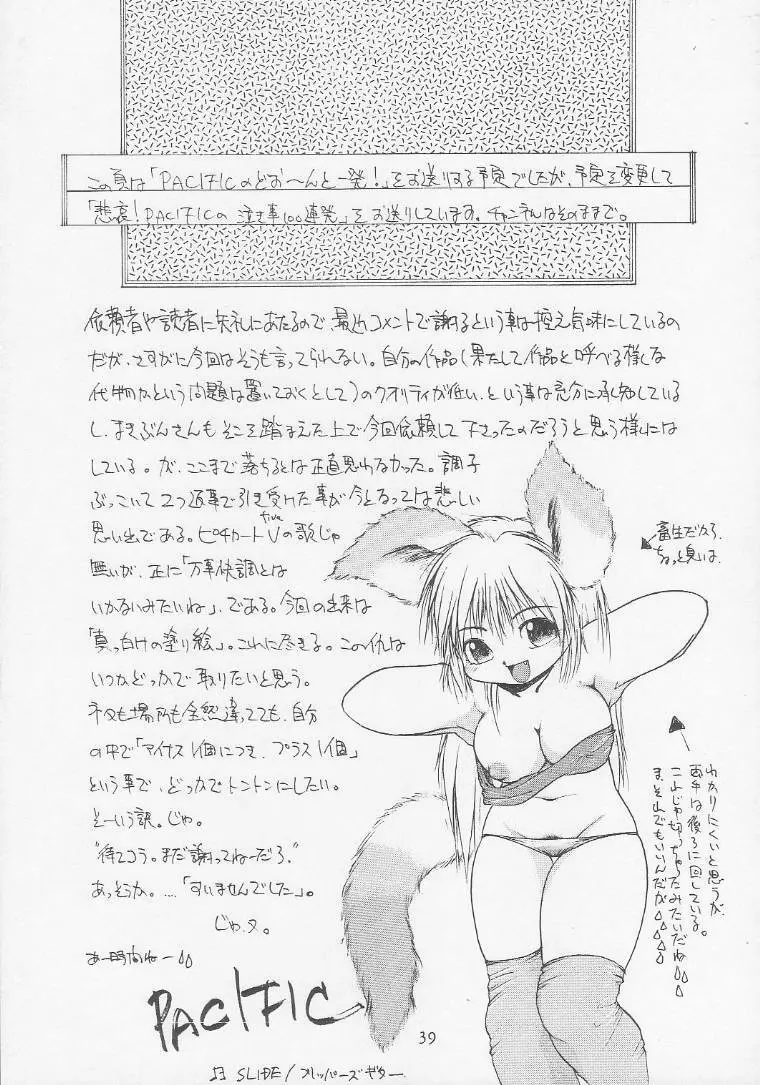 この頁は「PACIFICのどお〜んと一発!」をお送りする予定でしたが、予定を変更して
「悲哀!PACIFICの泣き事100連発」をお送りしています。チャンネルはそのままで。
依頼者や読者に失礼にあたるので、最近コメントで謝るという事は控え気味にしているの
だが、さすがに今回はそうも言ってられない。自分の作品(果たして作品と呼べる様な
代物かという問題は置いておくとして)のクオリティが低い、という事は充分に承知している
し、まきぶんさんもそこを踏まえた上で今回依頼して下さったのだろうと思う様には
している。が、ここまで落ちるとは正直思わなかった。調子
ぶっこいて2つ返事で引き受けた事が今となっては悲しい
思い出である。ピチカートV(five)の歌じゃ
無いが、正に「万事快調とは
いかないみたいね」、である。今回の出来は
「真っ白けの塗り絵」。これに尽きる。この仇は
いつかどっかで取りたいと思う。
ネタも場所も全然違ってても、自分
の中で「マイナス1個につき、プラス1個」
という事で、どっかでトントンにしたい。
そーいう訳。じゃ。
"待てコラ。まだ謝ってねーだろ"
あっそうか。…「すいませんでした」。
じゃ、
畜生だから、
ちょっと臭いは、
わかりにくいと思うが、
両手は後ろに回している。
これじゃ切っちゃったみたいだね
ま、それでもいいんだが
PACIFIC
39
SLIDE/フリッパーズギター